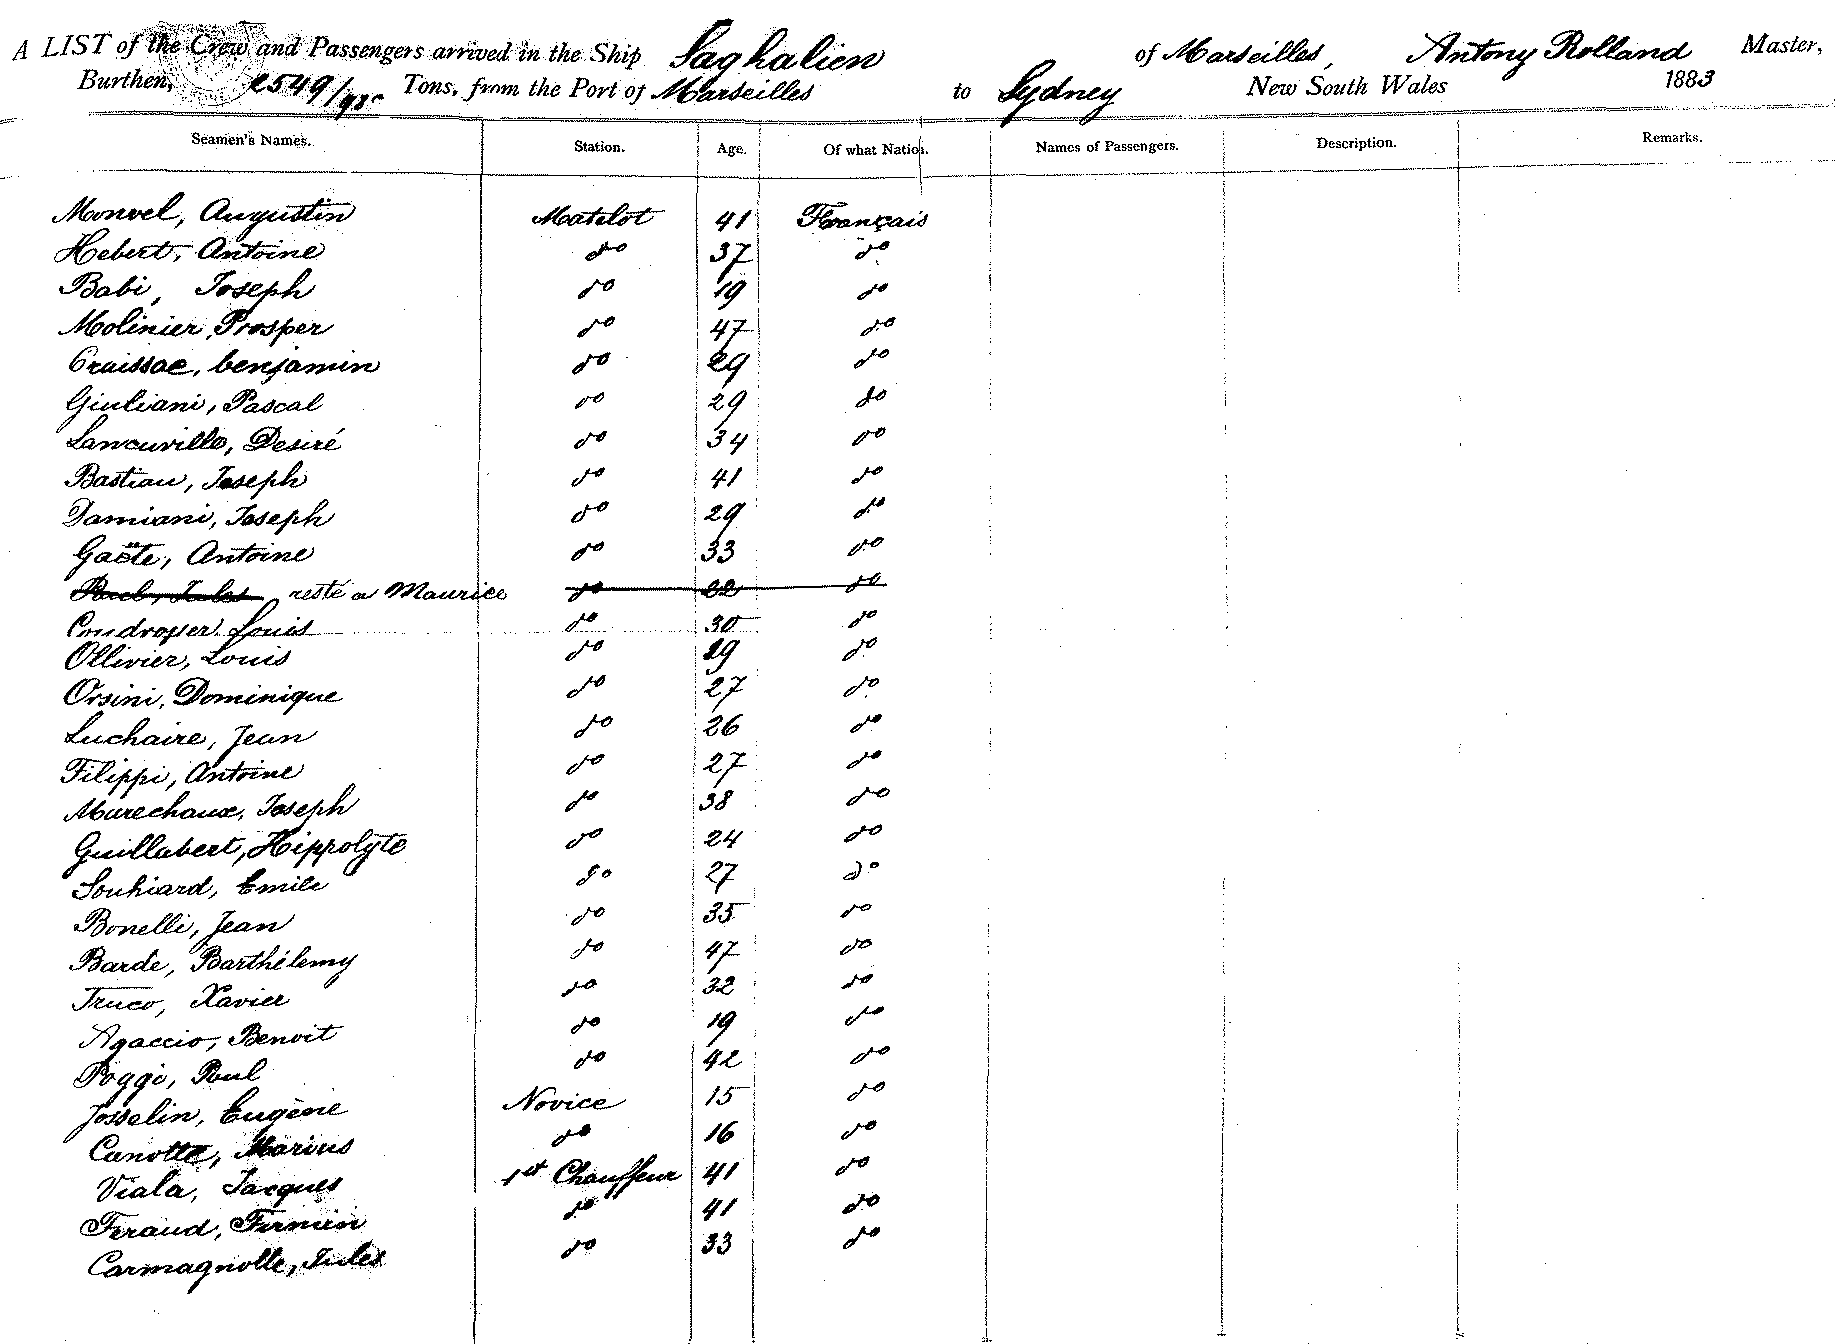 A LIST of the Crew and Passengers arrived in the Ship Saghalien of Marseilles, Antony Rolland Master,
Burthen, 2549/ Tons, from the Port of Marseilles to Sydney New South Wales 1883
Seamen's Names. Station. Age. Of what Nation. Names of Passengers. Description. Remarks.
Monvel, Augustin Matelot 41 Français
Hebert, Antoine do 37 do
Babi, Joseph do 19 do
Molinier, Prosper do 47 do
Craissac, benjamin do 29 do
Giuliani, Pascal do 29 do
Laneuville, Desiré do 34 do
Bastian, Joseph do 41 do
Damiani, Joseph do 29 do
Gaëte, Antoine do 33 do
Paul, Jules resté a Maurice do 22 do
Coudroyer Louis do 30 do
Ollivier, Louis do 29 do
Orsini, Dominique do 27 do
Luchaire, Jean do 26 do
Filippi, Antoine do 27 do
Marechaux, Joseph do 38 do
Guillabert, Hippolyte do 24 do
Souhiard, Emile do 27 do
Bonelli, Jean do 35 do
Barde, Barthélemy do 47 do
Truco, Xavier do 32 do
Agaccio, Benoit do 19 do
Poggi, Paul do 42 do
Josselin, Eugène Novice 15 do
Canotte, Marius do 16 do
Viala, Jacques 1st Chauffeur 41 do
Feraud, Firmin do 41 do
Carmagnolle, Jules do 33 do